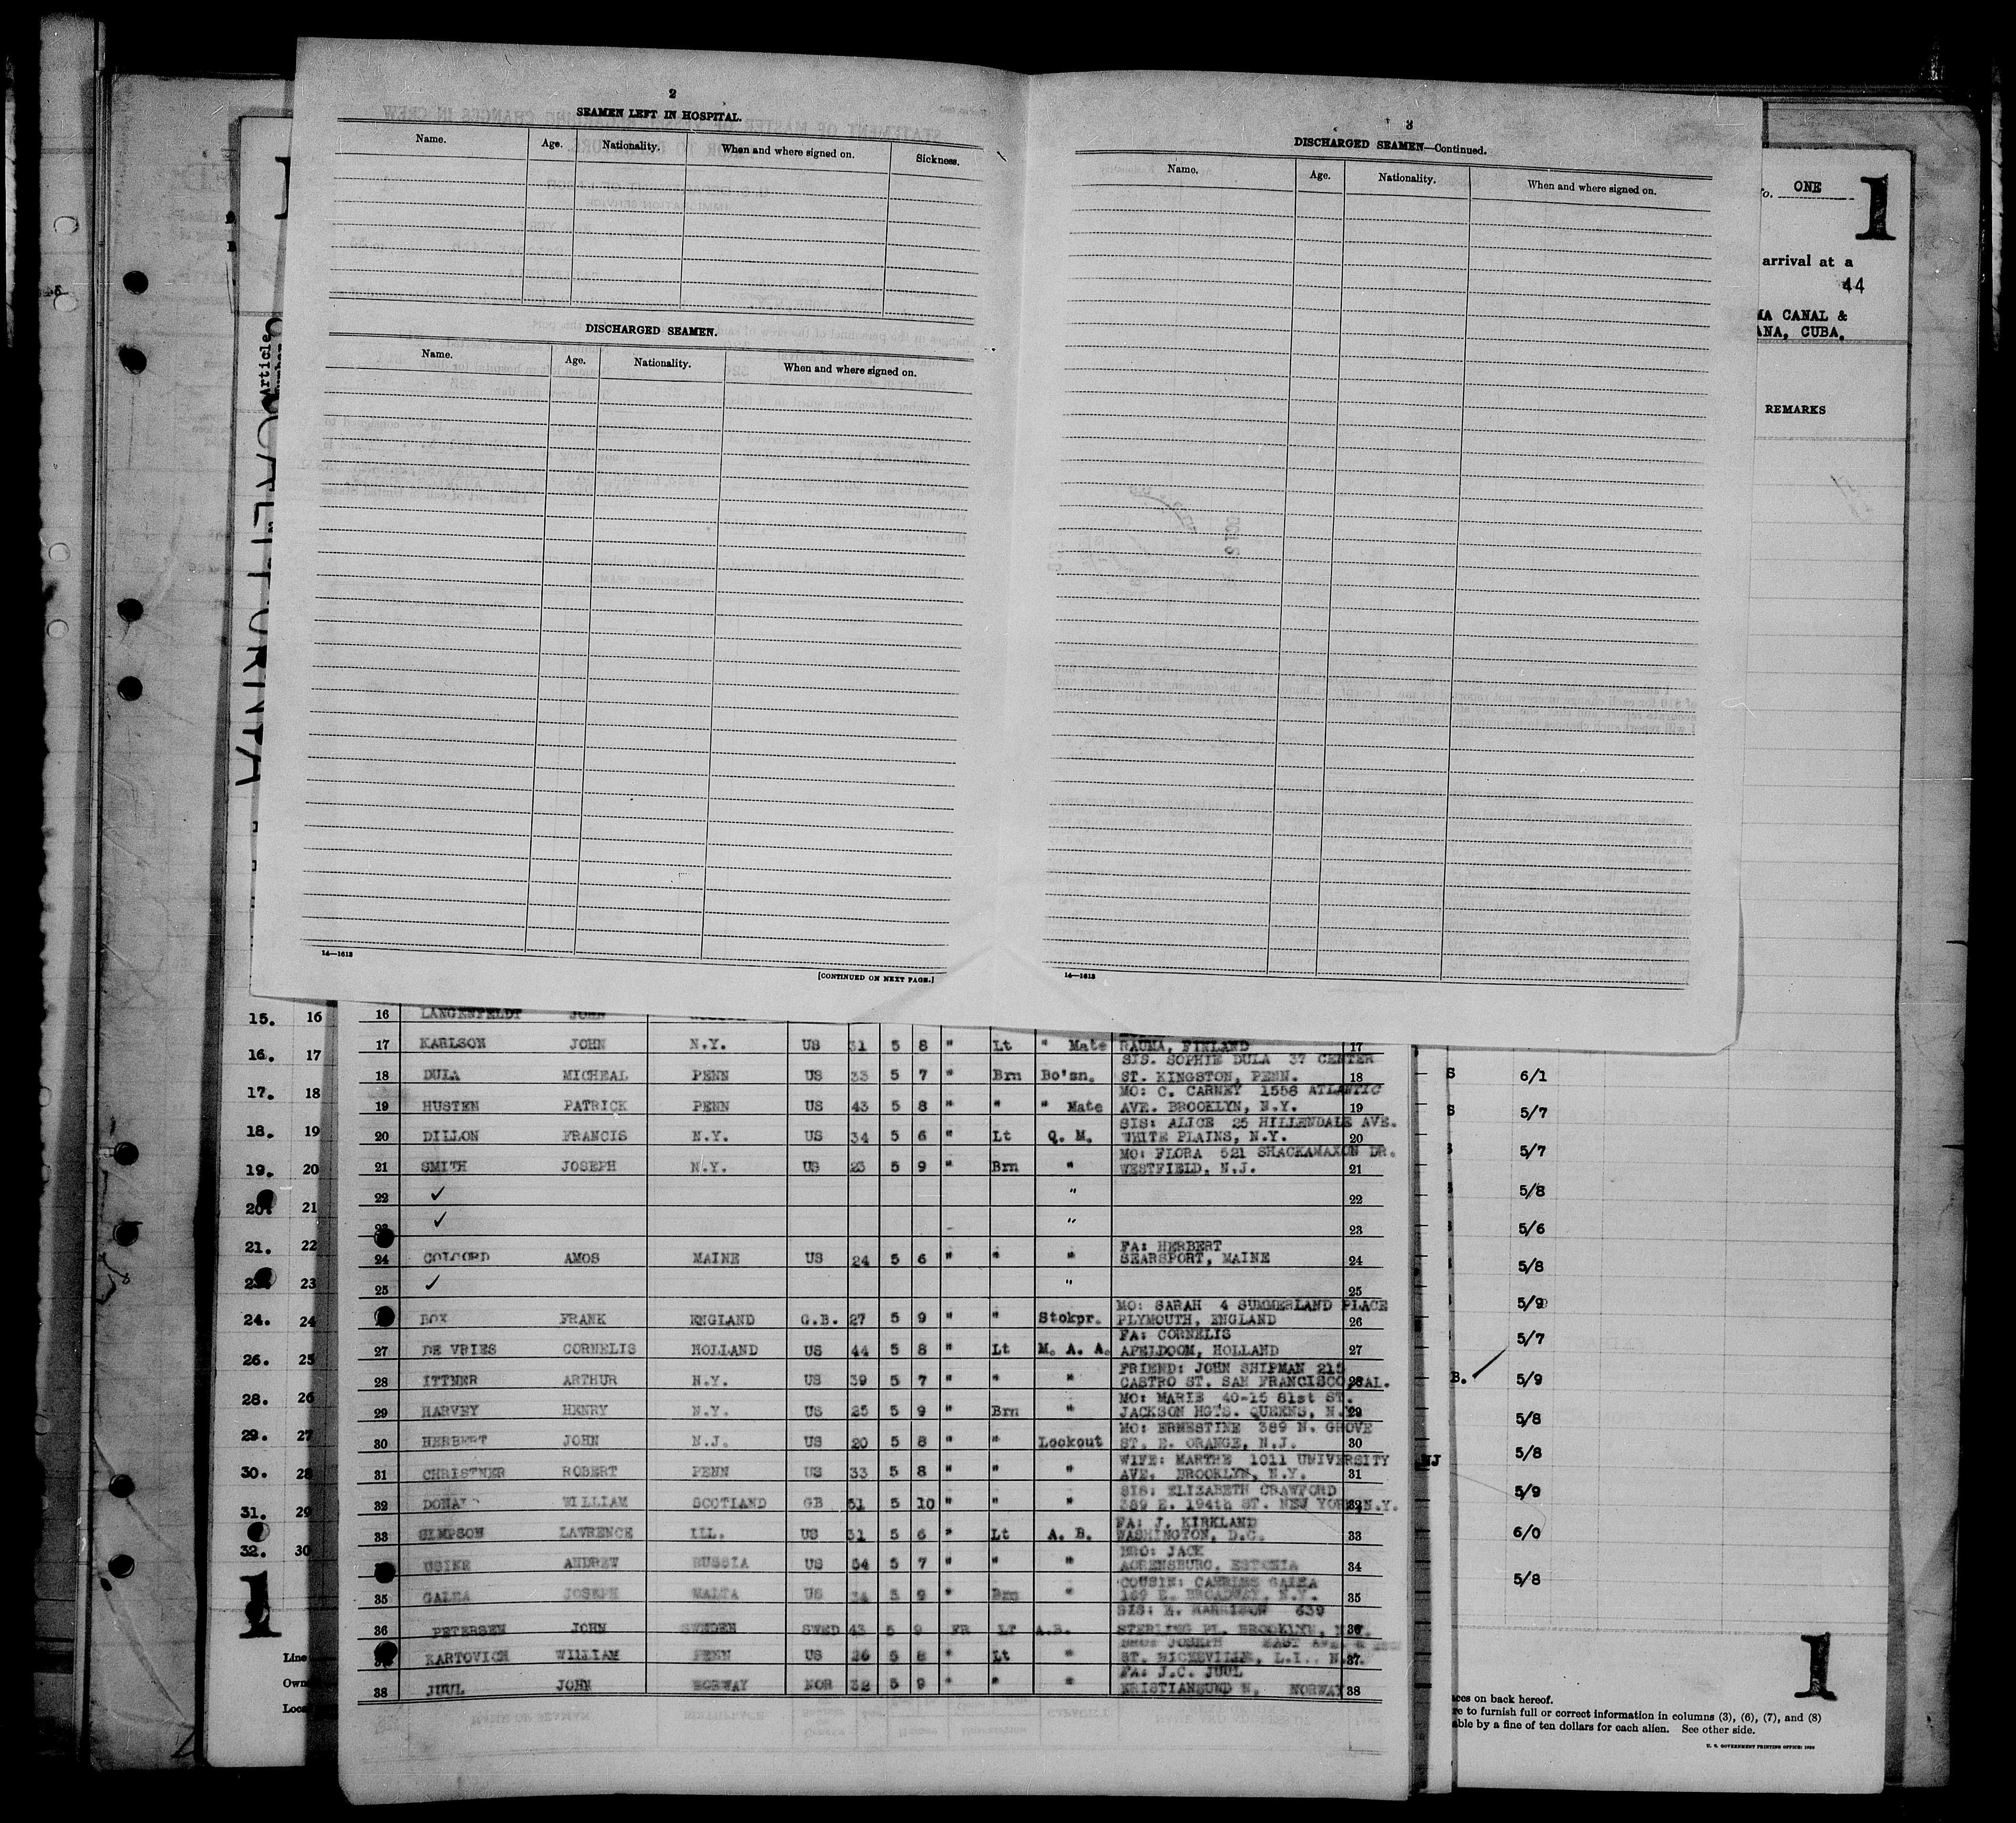 2
SEAMEN LEFT IN HOSPITAL.
Name. Age. Nationality. When and where signed on. Sickness.
DISCHARGED SEAMEN.
Name. Age. Nationality. When and where signed on.
14—1613
[CONTINUED ON NEXT PAGE.]
3
DISCHARGED SEAMEN—Continued.
Name. Age. Nationality. When and where signed on.
14—1613
ONE
1
arrival at a
44
MA CANAL &
ANA, CUBA.
REMARKS
Article
15. 16
16. 17
17. 18
18. 19
19. 20
20. 21
21. 22
23
24. 24
26. 25
28. 26
29. 27
30. 28
31. 29
32. 30
1
Line
Own
Loca
16 LANGENFELDT JOHN
17 KARLSON JOHN N.Y. US 31 5 8 " Lt " Mate RAUMA, FINLAND 17
SIS. SOPHIE DULA 37 CENTER
18 DULA MICHEAL PENN US 33 5 7 " Brn Bo'sn. ST. KINGSTON, PENN. 18
MO: C. CARNEY 1558 ATLANTIC
19 HUSTEN PATRICK PENN US 43 5 8 " " " Mate AVE. BROOKLYN, N.Y. 19
SIS: ALICE 25 HILLENDALE AVE.
20 DILLON FRANCIS N.Y. US 34 5 6 " Lt Q. M. WHITE PLAINS, N.Y. 20
MO: FLORA 521 SHACKAMAXON DR.
21 SMITH JOSEPH N.Y. US 23 5 9 " Brn " WESTFIELD, N.J. 21
22 ✓ " 22
23 ✓ " 23
FA: HERBERT
24 COLCORD AMOS MAINE US 24 5 6 " " " SEARSPORT, MAINE 24
25 ✓ " 25
MO: SARAH 4 SUMMERLAND PLACE
BOX FRANK ENGLAND G.B. 27 5 9 " " Stokpr. PLYMOUTH, ENGLAND 26
FA: CORNELIS
27 DE VRIES CORNELIS HOLLAND US 44 5 8 " Lt M. A. A. APELDOOM, HOLLAND 27
FRIEND: JOHN SHIPMAN 215
28 ITTNER ARTHUR N.Y. US 39 5 7 " " " CASTRO ST. SAN FRANCISCO, CAL. 28
MO: MARIE 40-15 81st ST.
29 HARVEY HENRY N.Y. US 25 5 9 " Brn " JACKSON HGTS. QUEENS, N.Y. 29
MO: ERNESTINE 389 N. GROVE
30 HERBERT JOHN N.J. US 20 5 8 " " Lookout ST. E. ORANGE, N.J. 30
WIFE: MARTHE 1011 UNIVERSITY
31 CHRISTNER ROBERT PENN US 33 5 8 " " " AVE. BROOKLYN, N.Y. 31
SIS: ELIZABETH CRAWFORD
32 DONALD WILLIAM SCOTLAND GB 51 5 10 " " " 389 E. 194th ST. NEW YORK, N.Y. 32
FA: J. KIRKLAND
33 SIMPSON LAWRENCE ILL. US 31 5 6 " Lt A. B. WASHINGTON, D.C. 33
BRO: JACK
ANDREW RUSSIA US 54 5 7 " " " ESTONIA 34
COUSIN: GALEA
35 GALEA JOSEPH MALTA US 34 5 9 " Brn " 169 E. BROADWAY, N.Y. 35
SIS: 839
36 PETERSEN JOHN SWEDEN SWED 43 5 9 FR LT A.B. STERLING PL. BROOKLYN, 36
JOSEPH EAST AVE. &
KARTOVICH WILLIAM PENN US 26 5 8 " Lt " ST. HICKSVILLE, L.I., N.Y. 37
FA: J.C. JUUL
38 JUUL JOHN NORWAY NOR 32 5 9 " " " KRISTIANSUND N. NORWAY 38
S 6/1
S 5/7
5/7
5/8
5/6
5/8
5/9
5/7
B. 5/9
5/8
NJ 5/8
5/9
6/0
5/8
1
ces on back hereof.
re to furnish full or correct information in columns (3), (6), (7), and (8)
able by a fine of ten dollars for each alien. See other side.
U. S. GOVERNMENT PRINTING OFFICE: